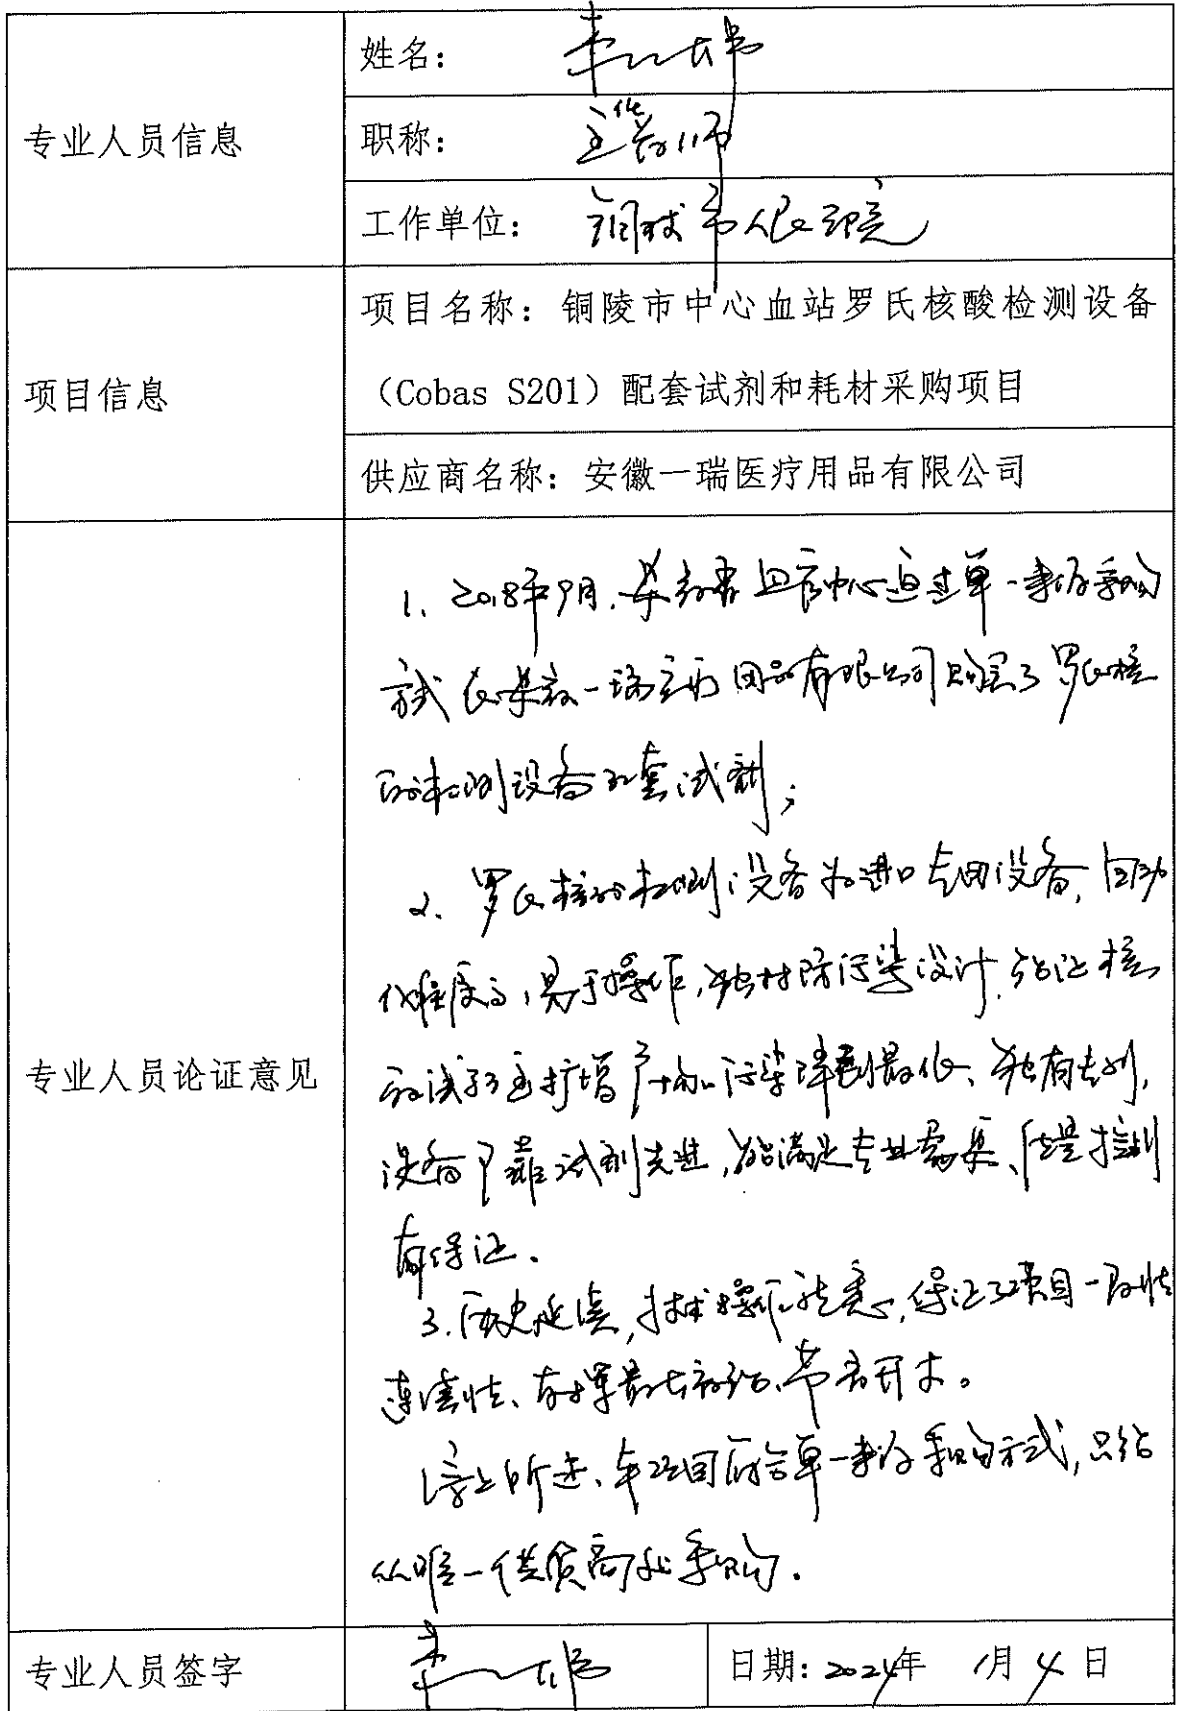 专业人员信息
姓名：
职称：主管技师
工作单位：铜陵市人民医院
项目信息
项目名称：铜陵市中心血站罗氏核酸检测设备
（Cobas S201）配套试剂和耗材采购项目
供应商名称：安徽一瑞医疗用品有限公司
专业人员论证意见
1、2018年9月，安徽省血液中心通过单一来源采购
方式从安徽一瑞医疗用品有限公司购买了罗氏核
酸检测设备配套试剂；
2、罗氏核酸检测设备为进口专用设备，自动
化程度高，易于操作，独特防污染设计，能让核
酸检测扩增产物污染降到最低、独有专利，
设备可靠试剂先进，能满足专业需要、质量控制
有保证。
3.历史延续，技术操作注意，保证了项目一致性
连续性、发挥最大效能、节省开支。
综上所述、本项目符合单一来源采购方式，只能
从唯一供货商处采购.
专业人员签字
日期：2024年 1月4日